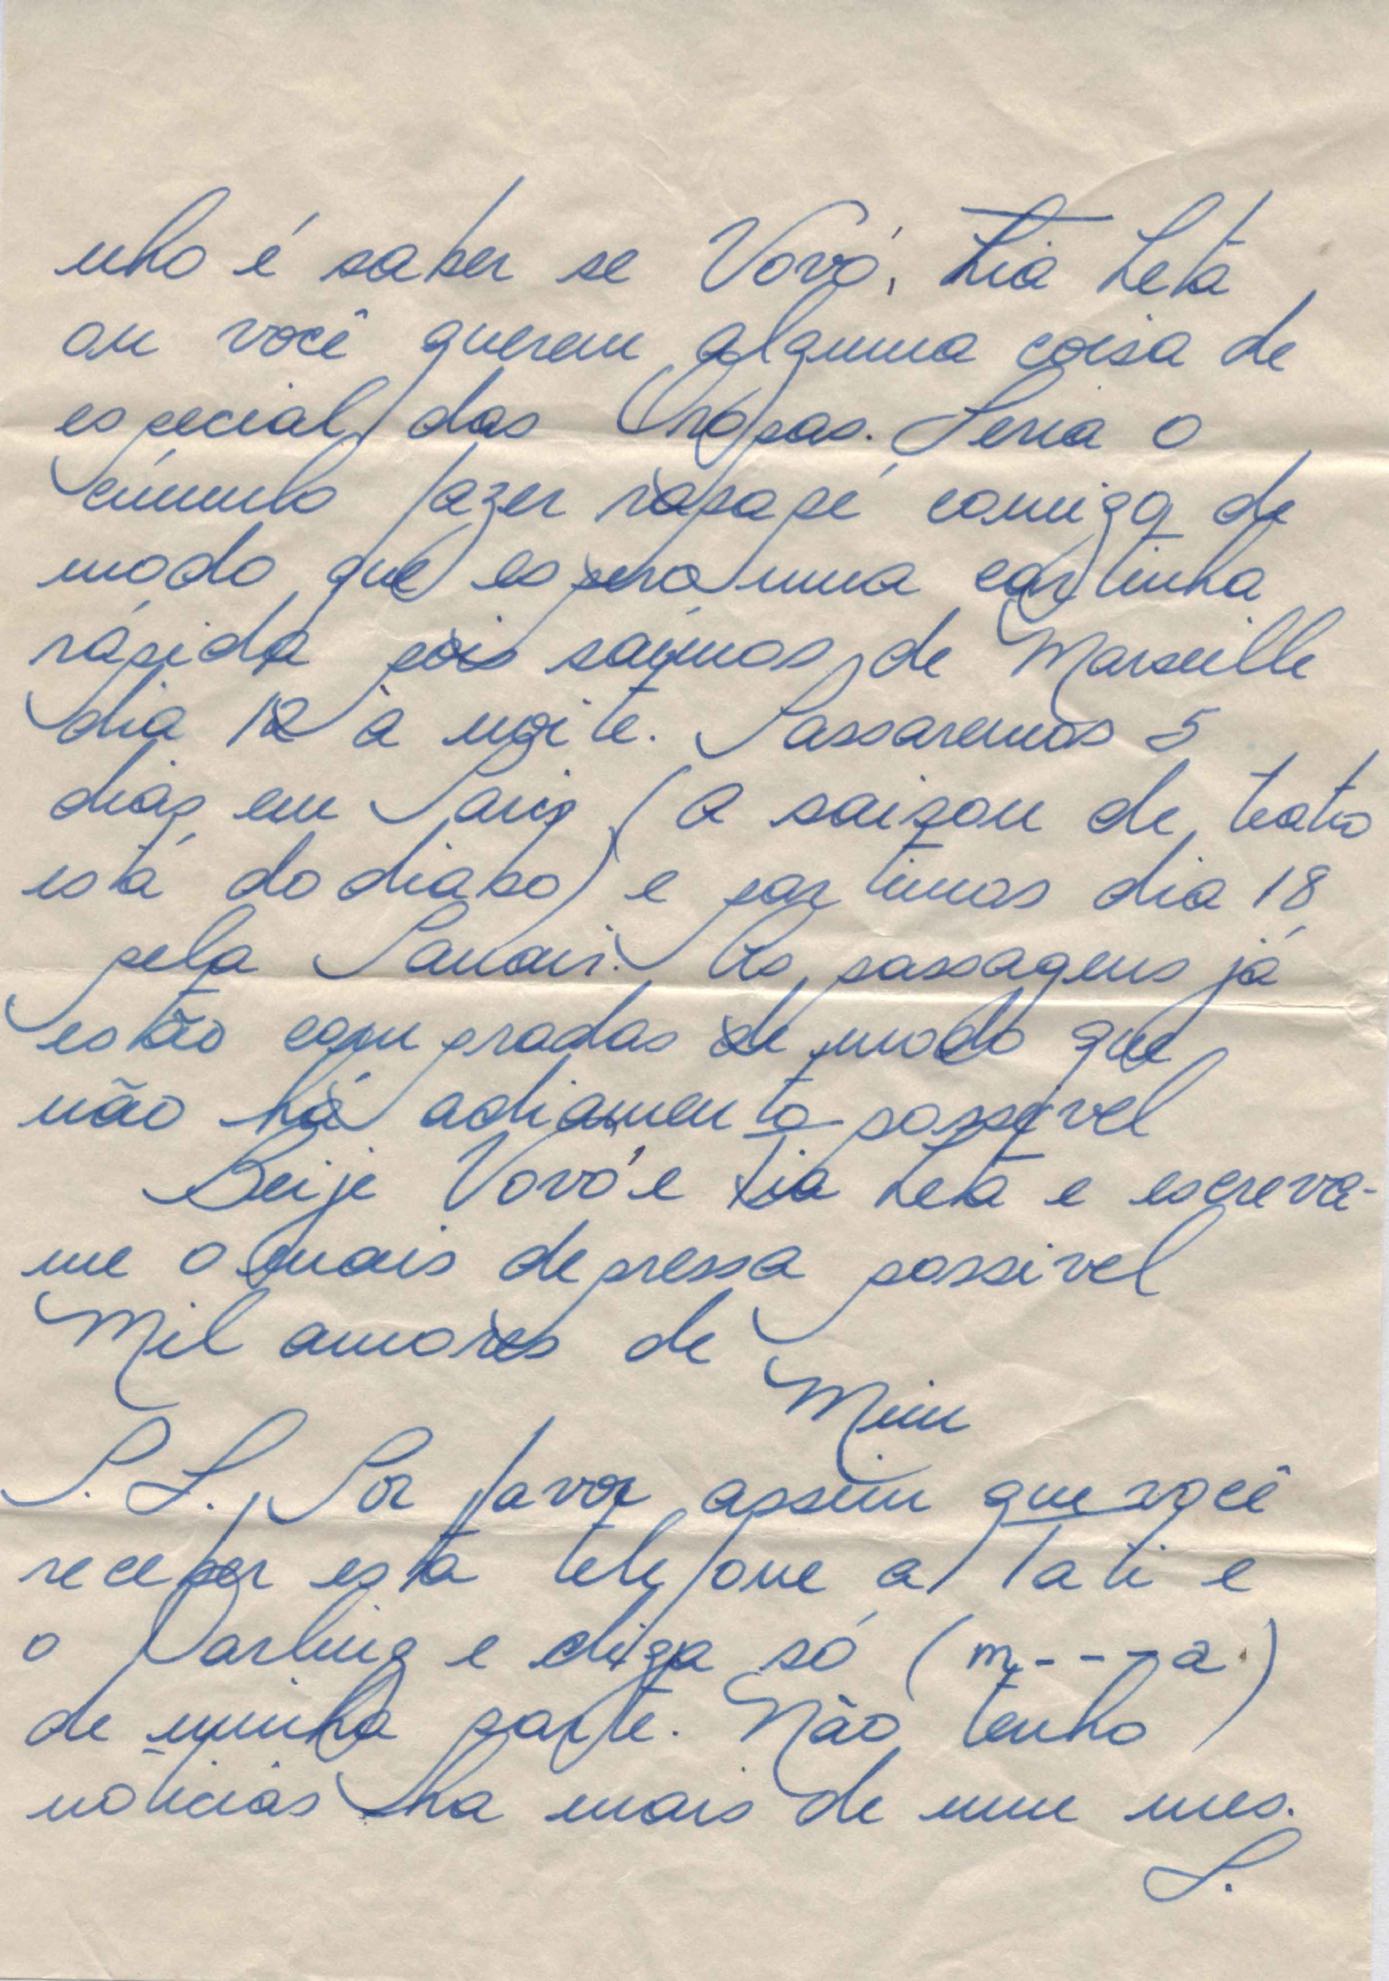 nho é saber se Vovó, tia Leta
ou você querem alguma coisa de
especial das Oropas. Seria o
cúmulo fazer rapapé comigo de
modo que espero uma cartinha
rápida pois saímos de Marseille
dia 12 à noite. Passaremos 5
dias em Paris (a saison de teatro
está do diabo) e partimos dia 18
pela Panair. As passagens já
estão compradas de modo que
não há adiamento possivel
Beije Vovó e tia Leta e escreva-
me o mais depressa possivel
Mil amores de
Mim
P.S. Por favor assim que você
receber esta telefone a Tati e
o Darling e diga só (m---a)
de minha parte. Não tenho
noticias ha mais de um mes.
S.